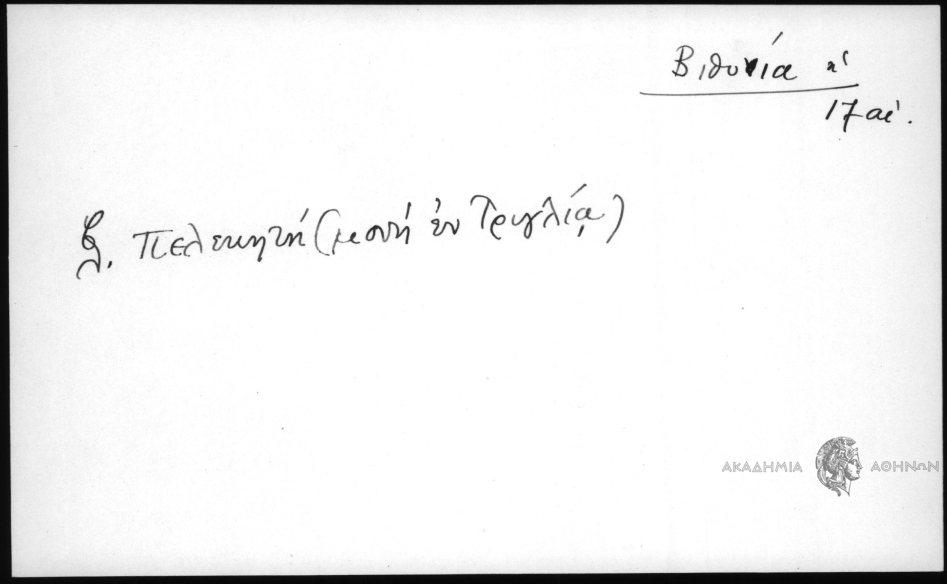 Βιθυνία κ'
17 αἰ.
βλ. Πελεκητή (μονή ἐν Τριγλίᾳ)
ΑΚΑΔΗΜΙΑ ΑΘΗΝΩΝ